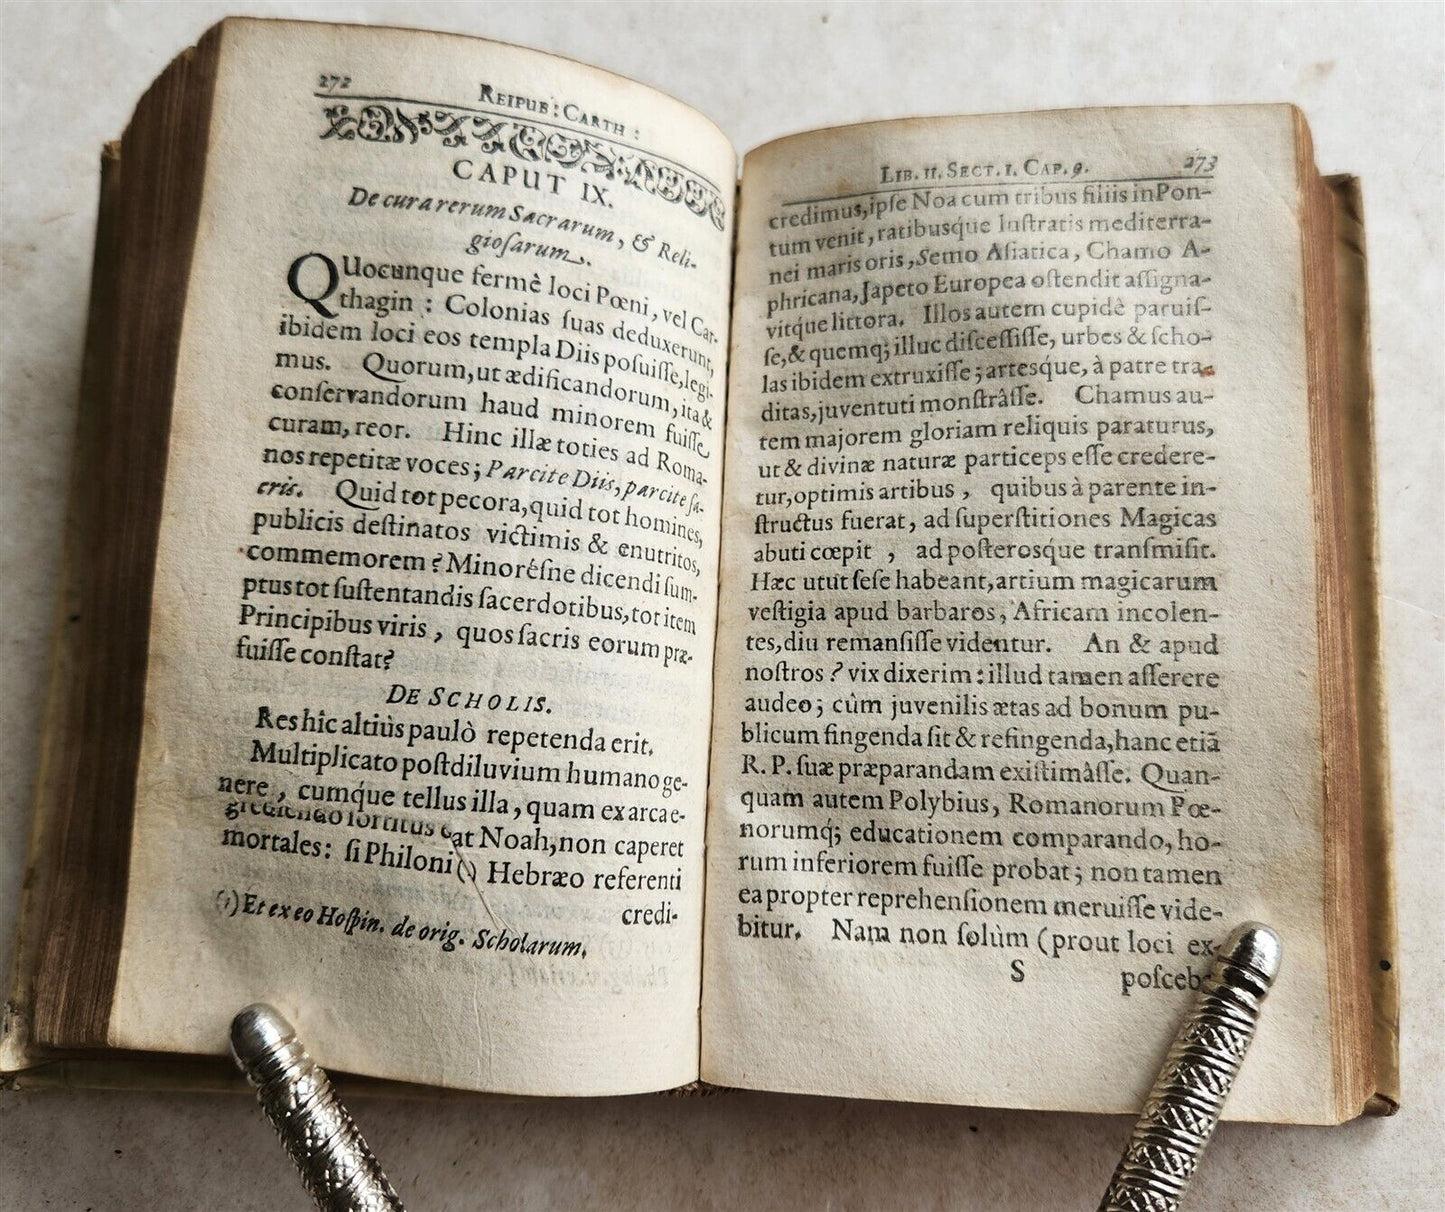 272
REIPUB: CARTH:
CAPUT IX.
De cura rerum Sacrarum, & Reli-
gioſarum.
QUocunque fermè loci Pœni, vel Car-
thagin: Colonias ſuas deduxerunt,
ibidem loci eos templa Diis poſuiſſe, legi-
mus. Quorum, ut ædificandorum, ita &
conſervandorum haud minorem fuiſſe
curam, reor. Hinc illæ toties ad Roma-
nos repetitæ voces; Parcite Diis, parcite ſa-
cris. Quid tot pecora, quid tot homines,
publicis deſtinatos victimis & enutritos,
commemorem? Minoréſne dicendi ſum-
ptus tot ſuſtentandis ſacerdotibus, tot item
Principibus viris, quos ſacris eorum præ-
fuiſſe conſtat?
DE SCHOLIS.
Res hîc altiùs paulò repetenda erit.
Multiplicato poſtdiluvium humano ge-
nere, cumque tellus illa, quam ex arca e-
grediendo ſortitus erat Noah, non caperet
mortales: ſi Philoni (1) Hebræo referenti
credi-
(1) Et ex eo Hoſpin. de orig. Scholarum.
LIB. II. SECT. I. CAP. 9. 273
credimus, ipſe Noa cum tribus filiis in Pon-
tum venit, ratibusque luſtratis mediterra-
nei maris oris, Semo Aſiatica, Chamo A-
phricana, Japeto Europea oſtendit aſſigna-
vitque littora. Illos autem cupidè paruiſ-
ſe, & quemq; illuc diſceſſiſſe, urbes & ſcho-
las ibidem extruxiſſe; artesque, à patre tra-
ditas, juventuti monſtrâſſe. Chamus au-
tem majorem gloriam reliquis paraturus,
ut & divinæ naturæ particeps eſſe credere-
tur, optimis artibus, quibus à parente in-
ſtructus fuerat, ad ſuperſtitiones Magicas
abuti cœpit, ad poſterosque tranſmiſit.
Hæc utut ſeſe habeant, artium magicarum
veſtigia apud barbaros, Africam incolen-
tes, diu remanſiſſe videntur. An & apud
noſtros? vix dixerim: illud tamen aſſerere
audeo; cùm juvenilis ætas ad bonum pu-
blicum fingenda ſit & refingenda, hanc etiã
R. P. ſuæ præparandam exiſtimâſſe. Quan-
quam autem Polybius, Romanorum Pœ-
norumq; educationem comparando, ho-
rum inferiorem fuiſſe probat; non tamen
ea propter reprehenſionem meruiſſe vide-
bitur. Nam non ſolùm (prout loci ex-
S poſceb